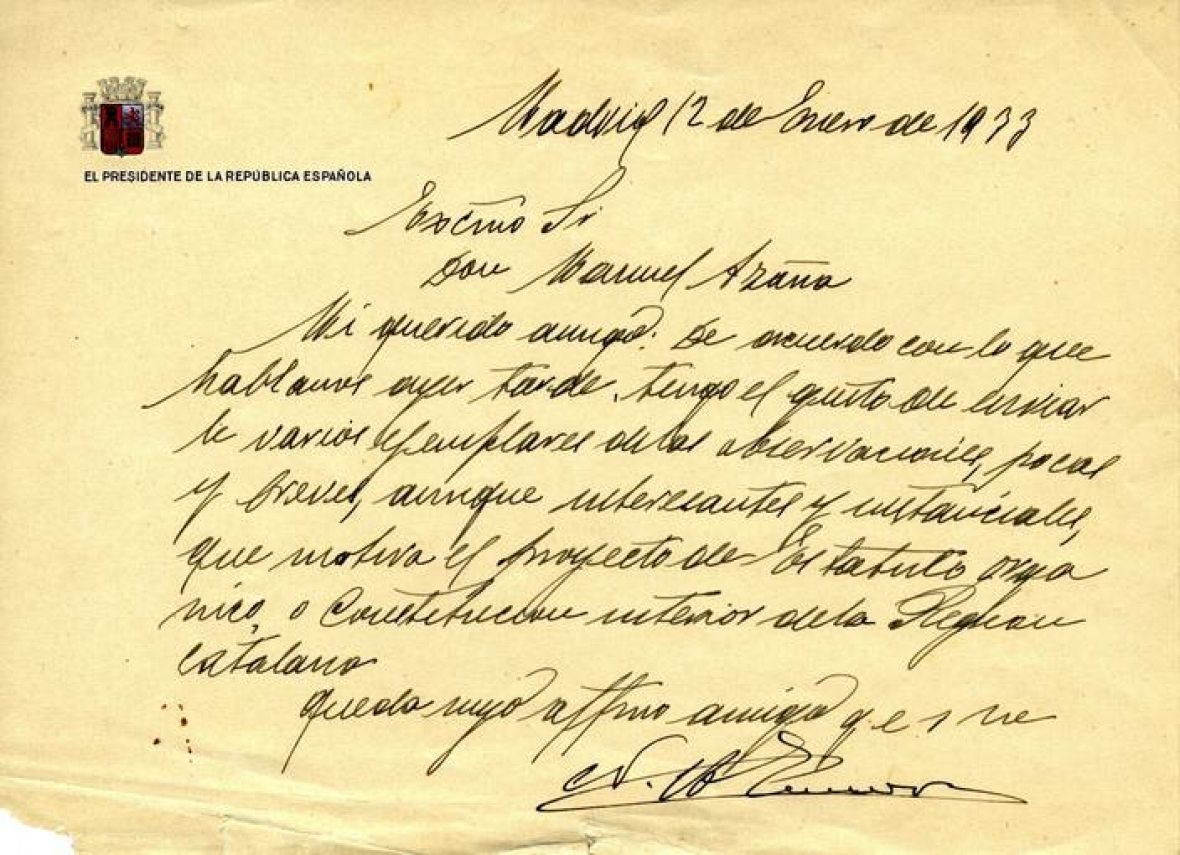 EL PRESIDENTE DE LA REPÚBLICA ESPAÑOLA
Madrid 12 de Enero de 1933
Excmo Sr
Don Manuel Azaña
Mi querido amigo: De acuerdo con lo que
hablamos ayer tarde, tengo el gusto de enviar
le varios ejemplares de las observaciones, pocas
y breves, aunque interesantes y sustanciales,
que motiva el proyecto de Estatuto orga
nico, o Constitucion interior de la Region
catalana
Queda suyo affmo amigo q e s m